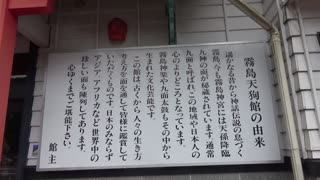 霧島天狗館の由来
遥かなる昔から神話伝説の息づく
霧島、今も霧島神宮には天孫降臨
九神の面が秘蔵されています。通常
九面と呼ばれ、この地域や日本人の
心のよりどころとなっています。
霧島神楽や九面太鼓もその中から
生まれた文化芸能です。
この館は、古くから人々の生き方
考え方を面を通して皆様に鑑賞して
いただくものです。日本のみならず
アジア・アフリカなど世界中の
珍しい面も陳列してあります。
心ゆくまでご堪能下さい。
館主